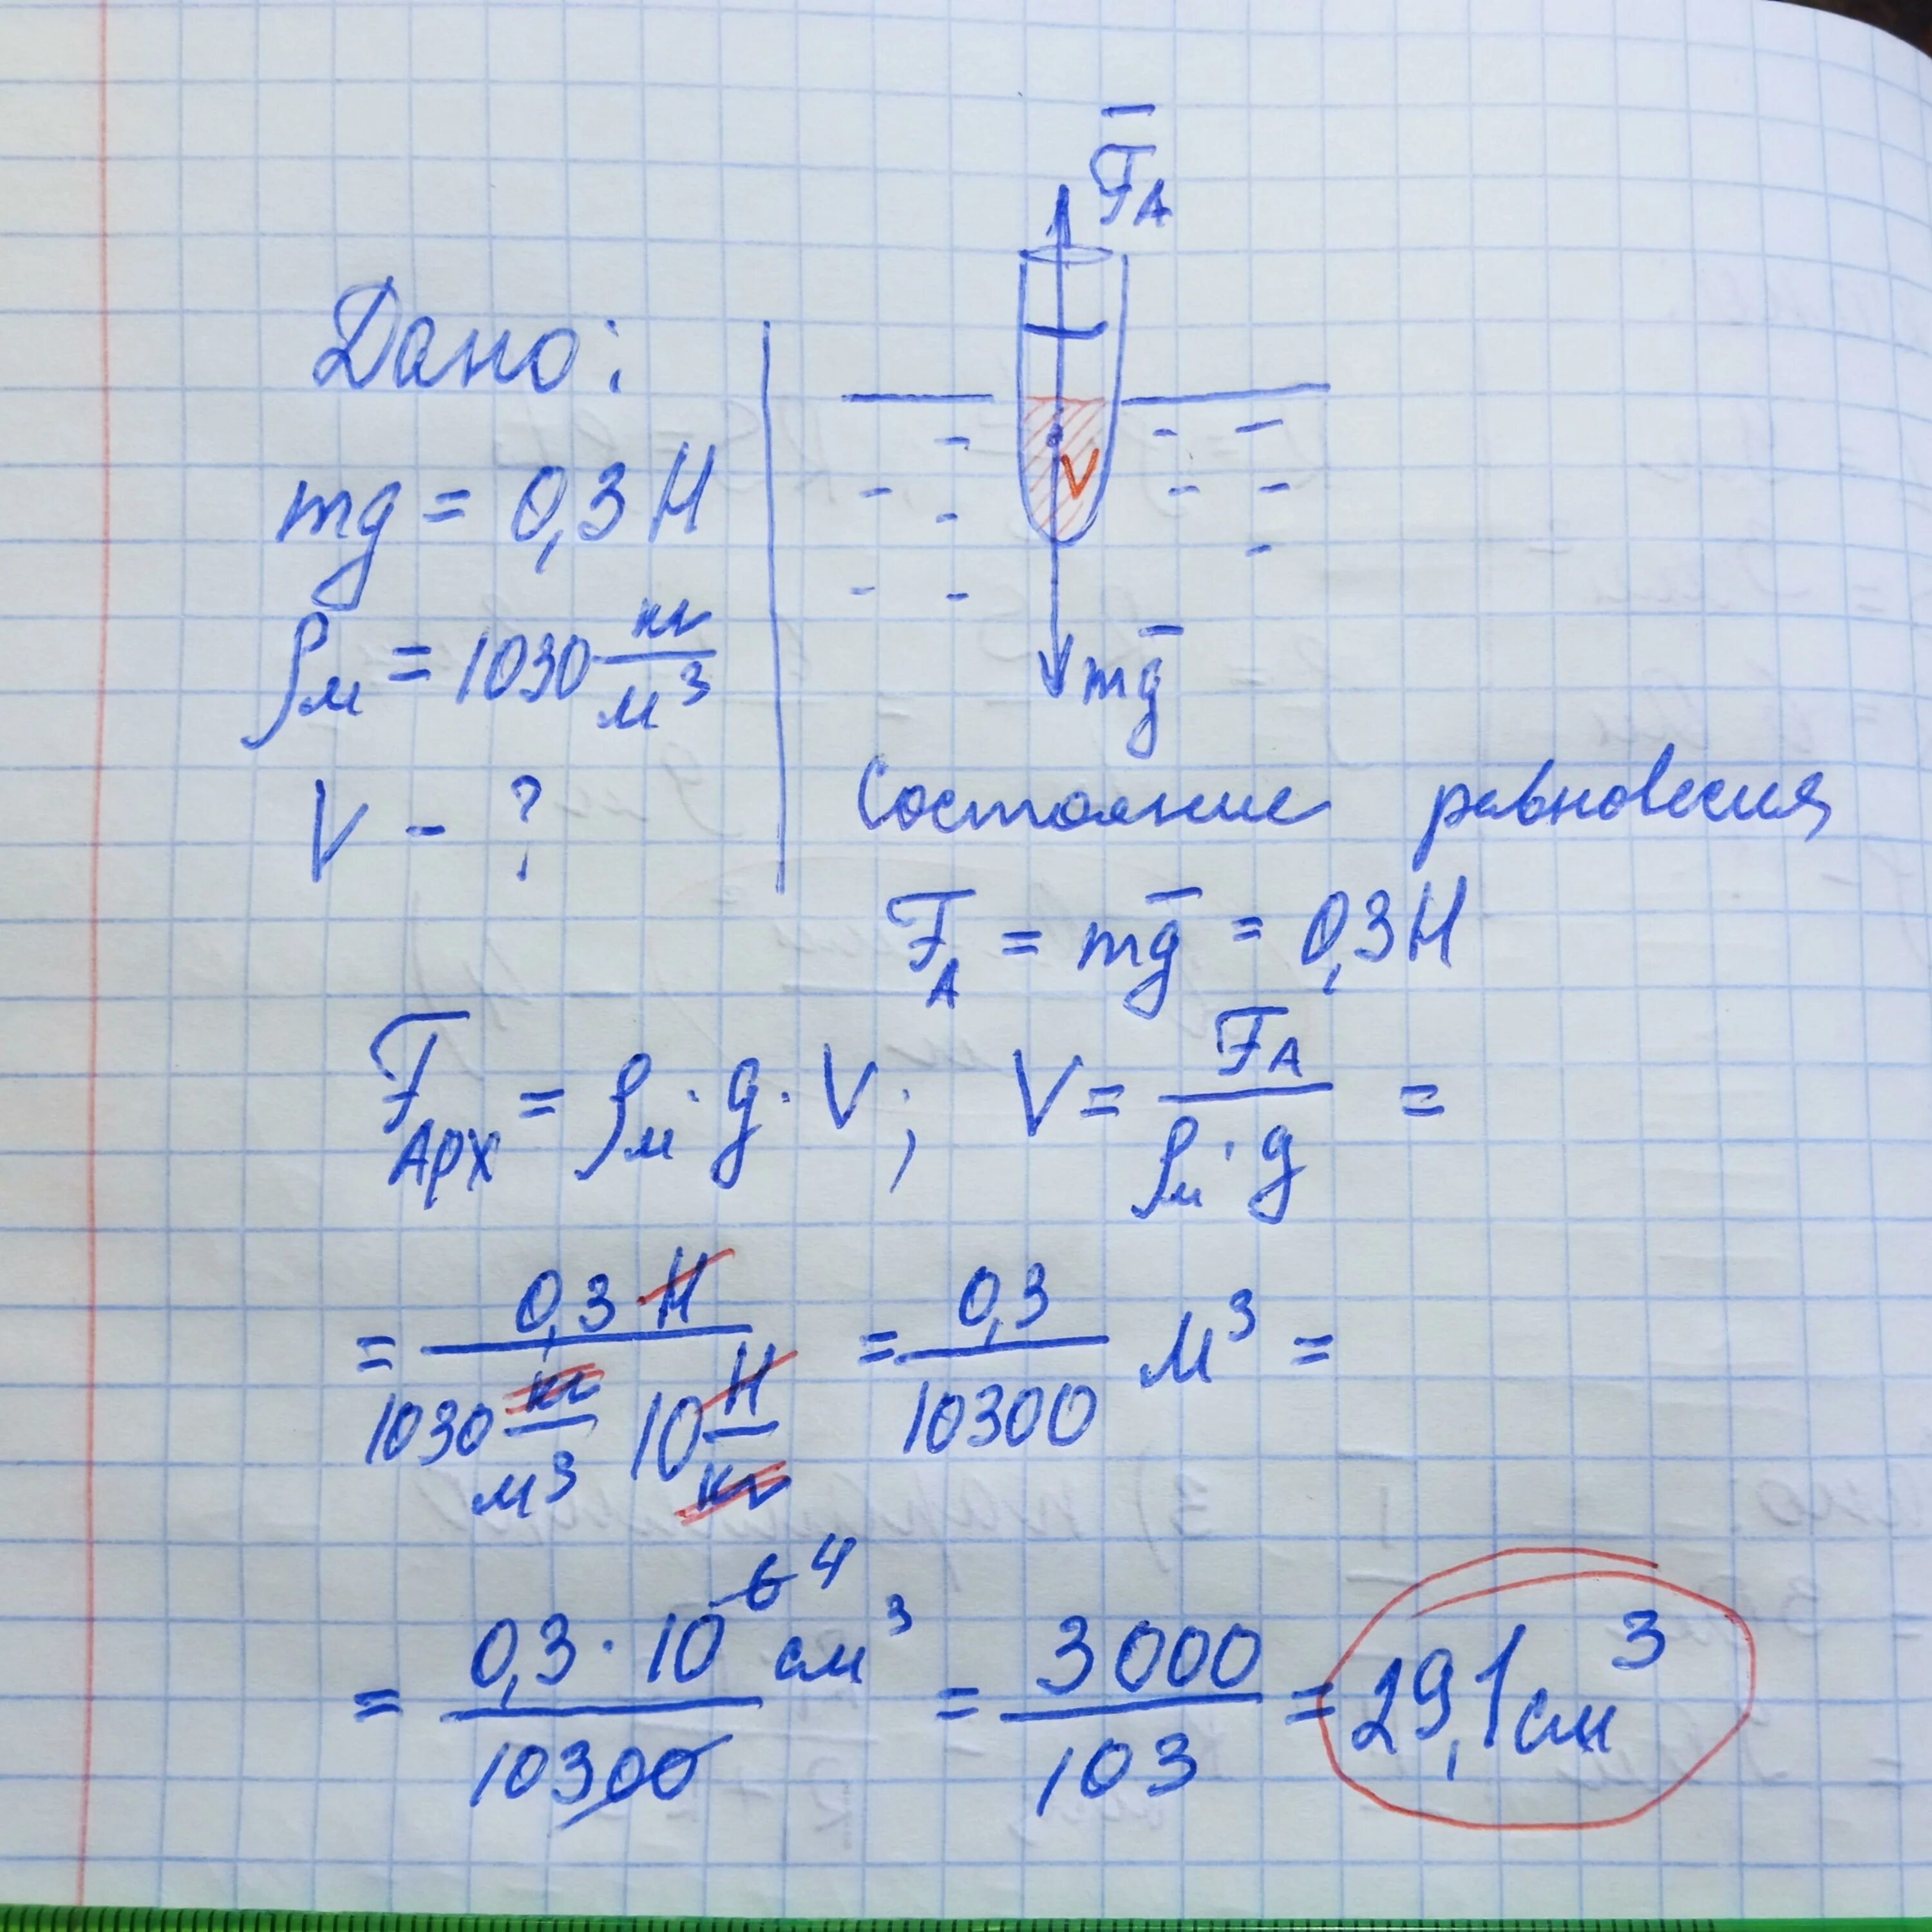 F̅_A
Дано:
mg = 0,3 Н
V
ρ_м = 1030 кг/м³
mg̅
V - ?
Состояние равновесия
F_A = mg̅ = 0,3 Н
F_Арх = ρ_м · g · V; V = F_A / (ρ_м · g) =
= 0,3 · Н / (1030 кг/м³ 10 Н/кг) = 0,3 / 10300 м³ =
= 0,3 · 10^6 4 см³ / 10300 = 3000 / 103 = 29,1 см³